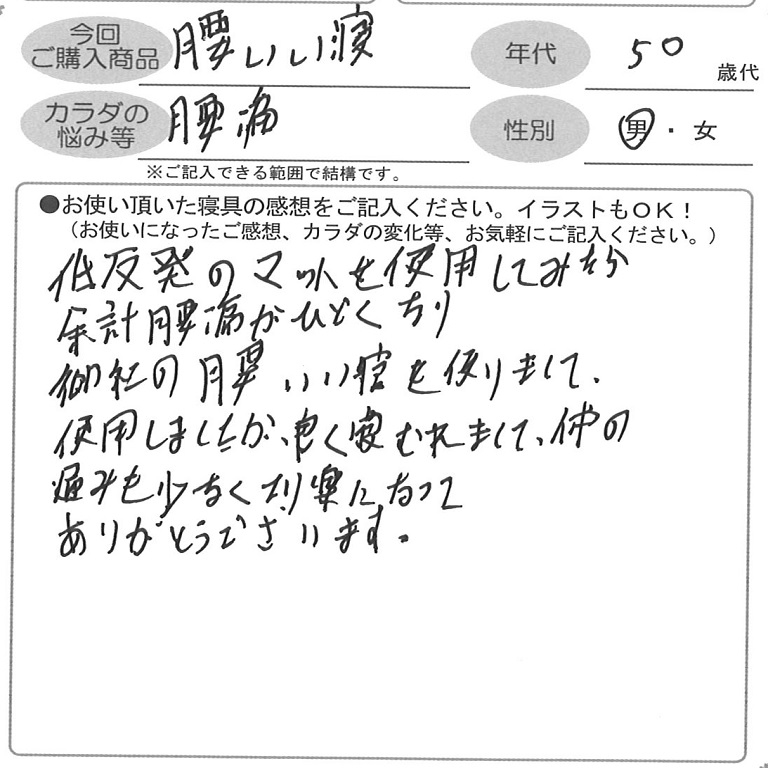 今回
ご購入商品
腰いい寝
年代
50
歳代
カラダの
悩み等
腰痛
性別
男・女
※ご記入できる範囲で結構です。
●お使い頂いた寝具の感想をご記入ください。イラストもOK!
(お使いになったご感想、カラダの変化等、お気軽にご記入ください。)
低反発のマットを使用してみたら
余計腰痛がひどくなり
御社の腰いい寝を使いまして、
使用しましたが、良く寝むれまして、体の
痛みも少なくなり楽になって
ありがとうございます。